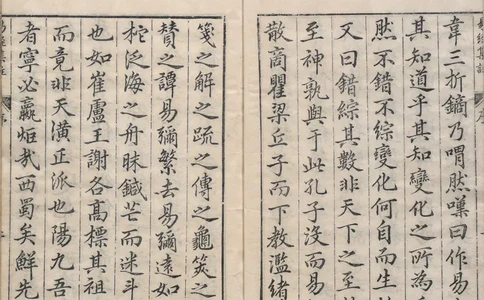 韋三折鏑乃喟然嘆曰作易
其知道乎其知變化之所為
然不錯不綜變化何自而生
又曰錯綜其數非天下之至
至神孰與于此孔子沒而易
散商瞿梁丘子而下教濫緒
箋之解之疏之傳之龜筴之
贊之譚易彌繁去易彌遠如
柁泛海之舟昧鍼芒而迷斗
也如崔盧王謝各高標其祖
而竟非天潢正派也陽九吾
者寧必嬴炬哉西蜀矣鮮先
序